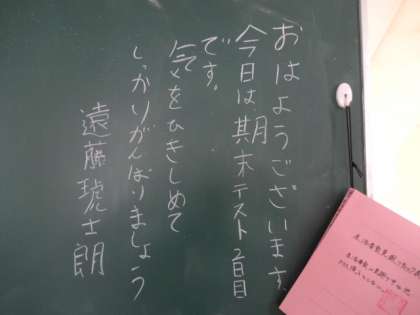 おはようございます。
今日は期末テスト2日目
です。
気をひきしめて
しっかりがんばりましょう
遠藤琥士朗